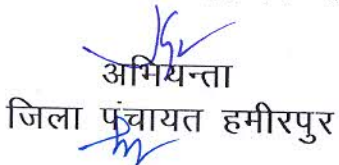 अभियन्ता
जिला पंचायत हमीरपुर